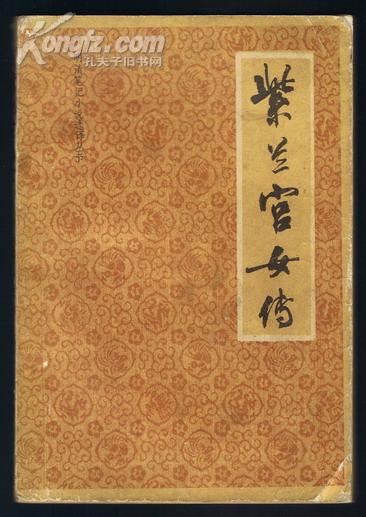 Kongfz.com
孔夫子旧书网
笔记小说选译丛书
紫兰宫女传